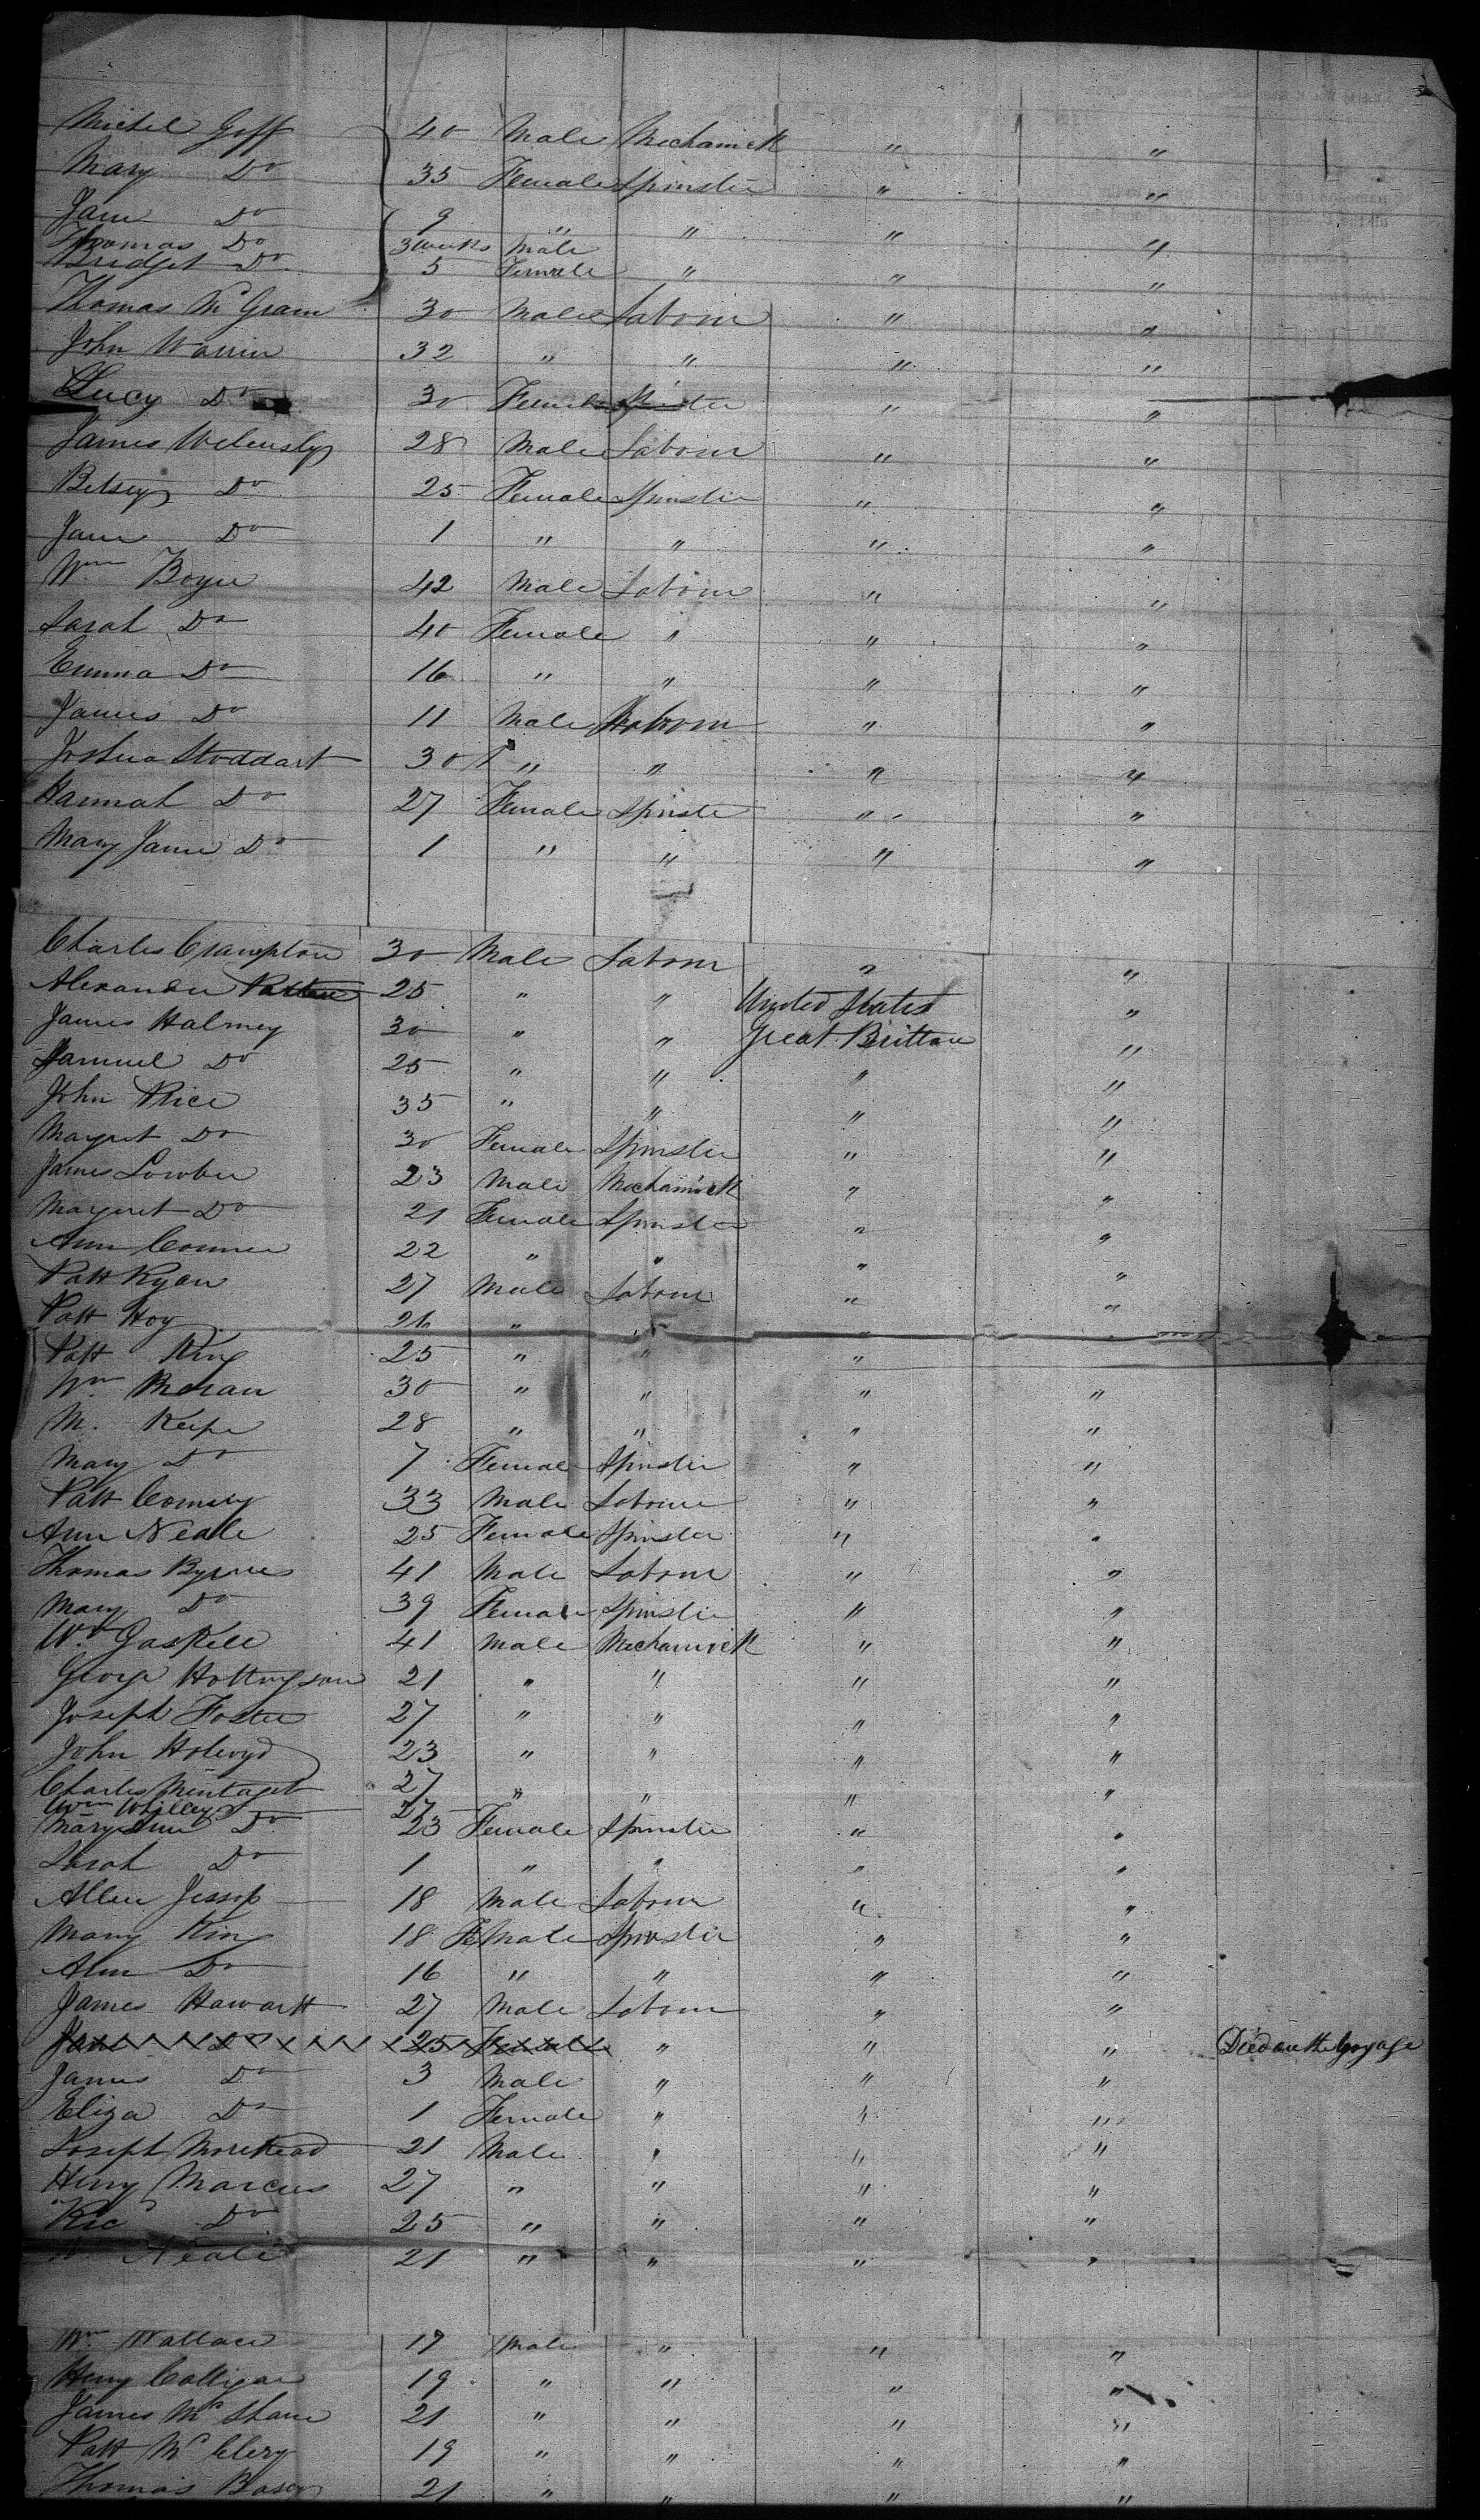 Michel Goff 40 Male Mechanick " "
Mary Do 35 Female Spinster " "
Jane Do 9 " " " "
Thomas Do 3 weeks Male
Bridget Do 5 Female " " "
Thomas Mc Gram 30 Male Labour " "
John Warrin 32 " " " "
Lucy Do 30 Female Spinster " "
James 28 Male Labour " "
Betsey Do 25 Female Spinster " "
Jane Do 1 " " " "
Wm Boyce 42 Male Labour " "
Sarah Do 40 Female " " "
Emma Do 16 " " " "
James Do 11 Male Labour " "
Joshua Stoddart 30 " " " "
Hannah Do 27 Female Spinste " "
Mary Jane Do 1 " " " "
Charles Crampton 30 Male Labour " "
Alexander 25 " " United States "
James Halmey 30 " " Great Brittan "
Samuel Do 25 " " " "
John Price 35 " " " "
Margret Do 30 Female Spinster " "
James Lowber 23 Male Mechanick " "
Margeret Do 21 Female Spinster " "
Ann Conner 22 " " " "
Patt Ryan 27 Male Labour " "
Patt Hoy 26 " " "
Patt King 25 " " "
Wm Moran 30 " " " "
M. Keefe 28 " " " "
Mary Do 7 Female Spinster " "
Patt 33 Male Labour " "
Ann Neale 25 Female Spinster " "
Thomas Byrnes 41 Male Labour " "
Mary Do 39 Female Spinster " "
Wm Gaskell 41 Male Mechanick " "
George Hottingson 21 " " " "
Joseph Foster 27 " " " "
John Holroyd 23 " " " "
Charles 27 " " " "
Wm Whilley 27
Mary Ann Do 23 Female Spinster " "
Sarah Do 1 " " " "
Allen Jessop 18 Male Labour " "
Mary King 18 Female Spinster " "
Ann Do 16 " " " "
James Hawarth 27 Male Labour " "
Jane Do 25 Female " " " Died on the Voyage
James Do 3 Male " " "
Eliza Do 1 Female " " "
Joseph Morehead 21 Male " " "
Henry Marcus 27 " " " "
Ricd Do 25 " " " "
Neale 21 " " " "
Wm Wallace 17 Male " " "
Henry Colligan 19 " " " "
James Mc Shane 21 " " " "
Patt Mc Clery 19 " " " "
Thomas 21 " " " "